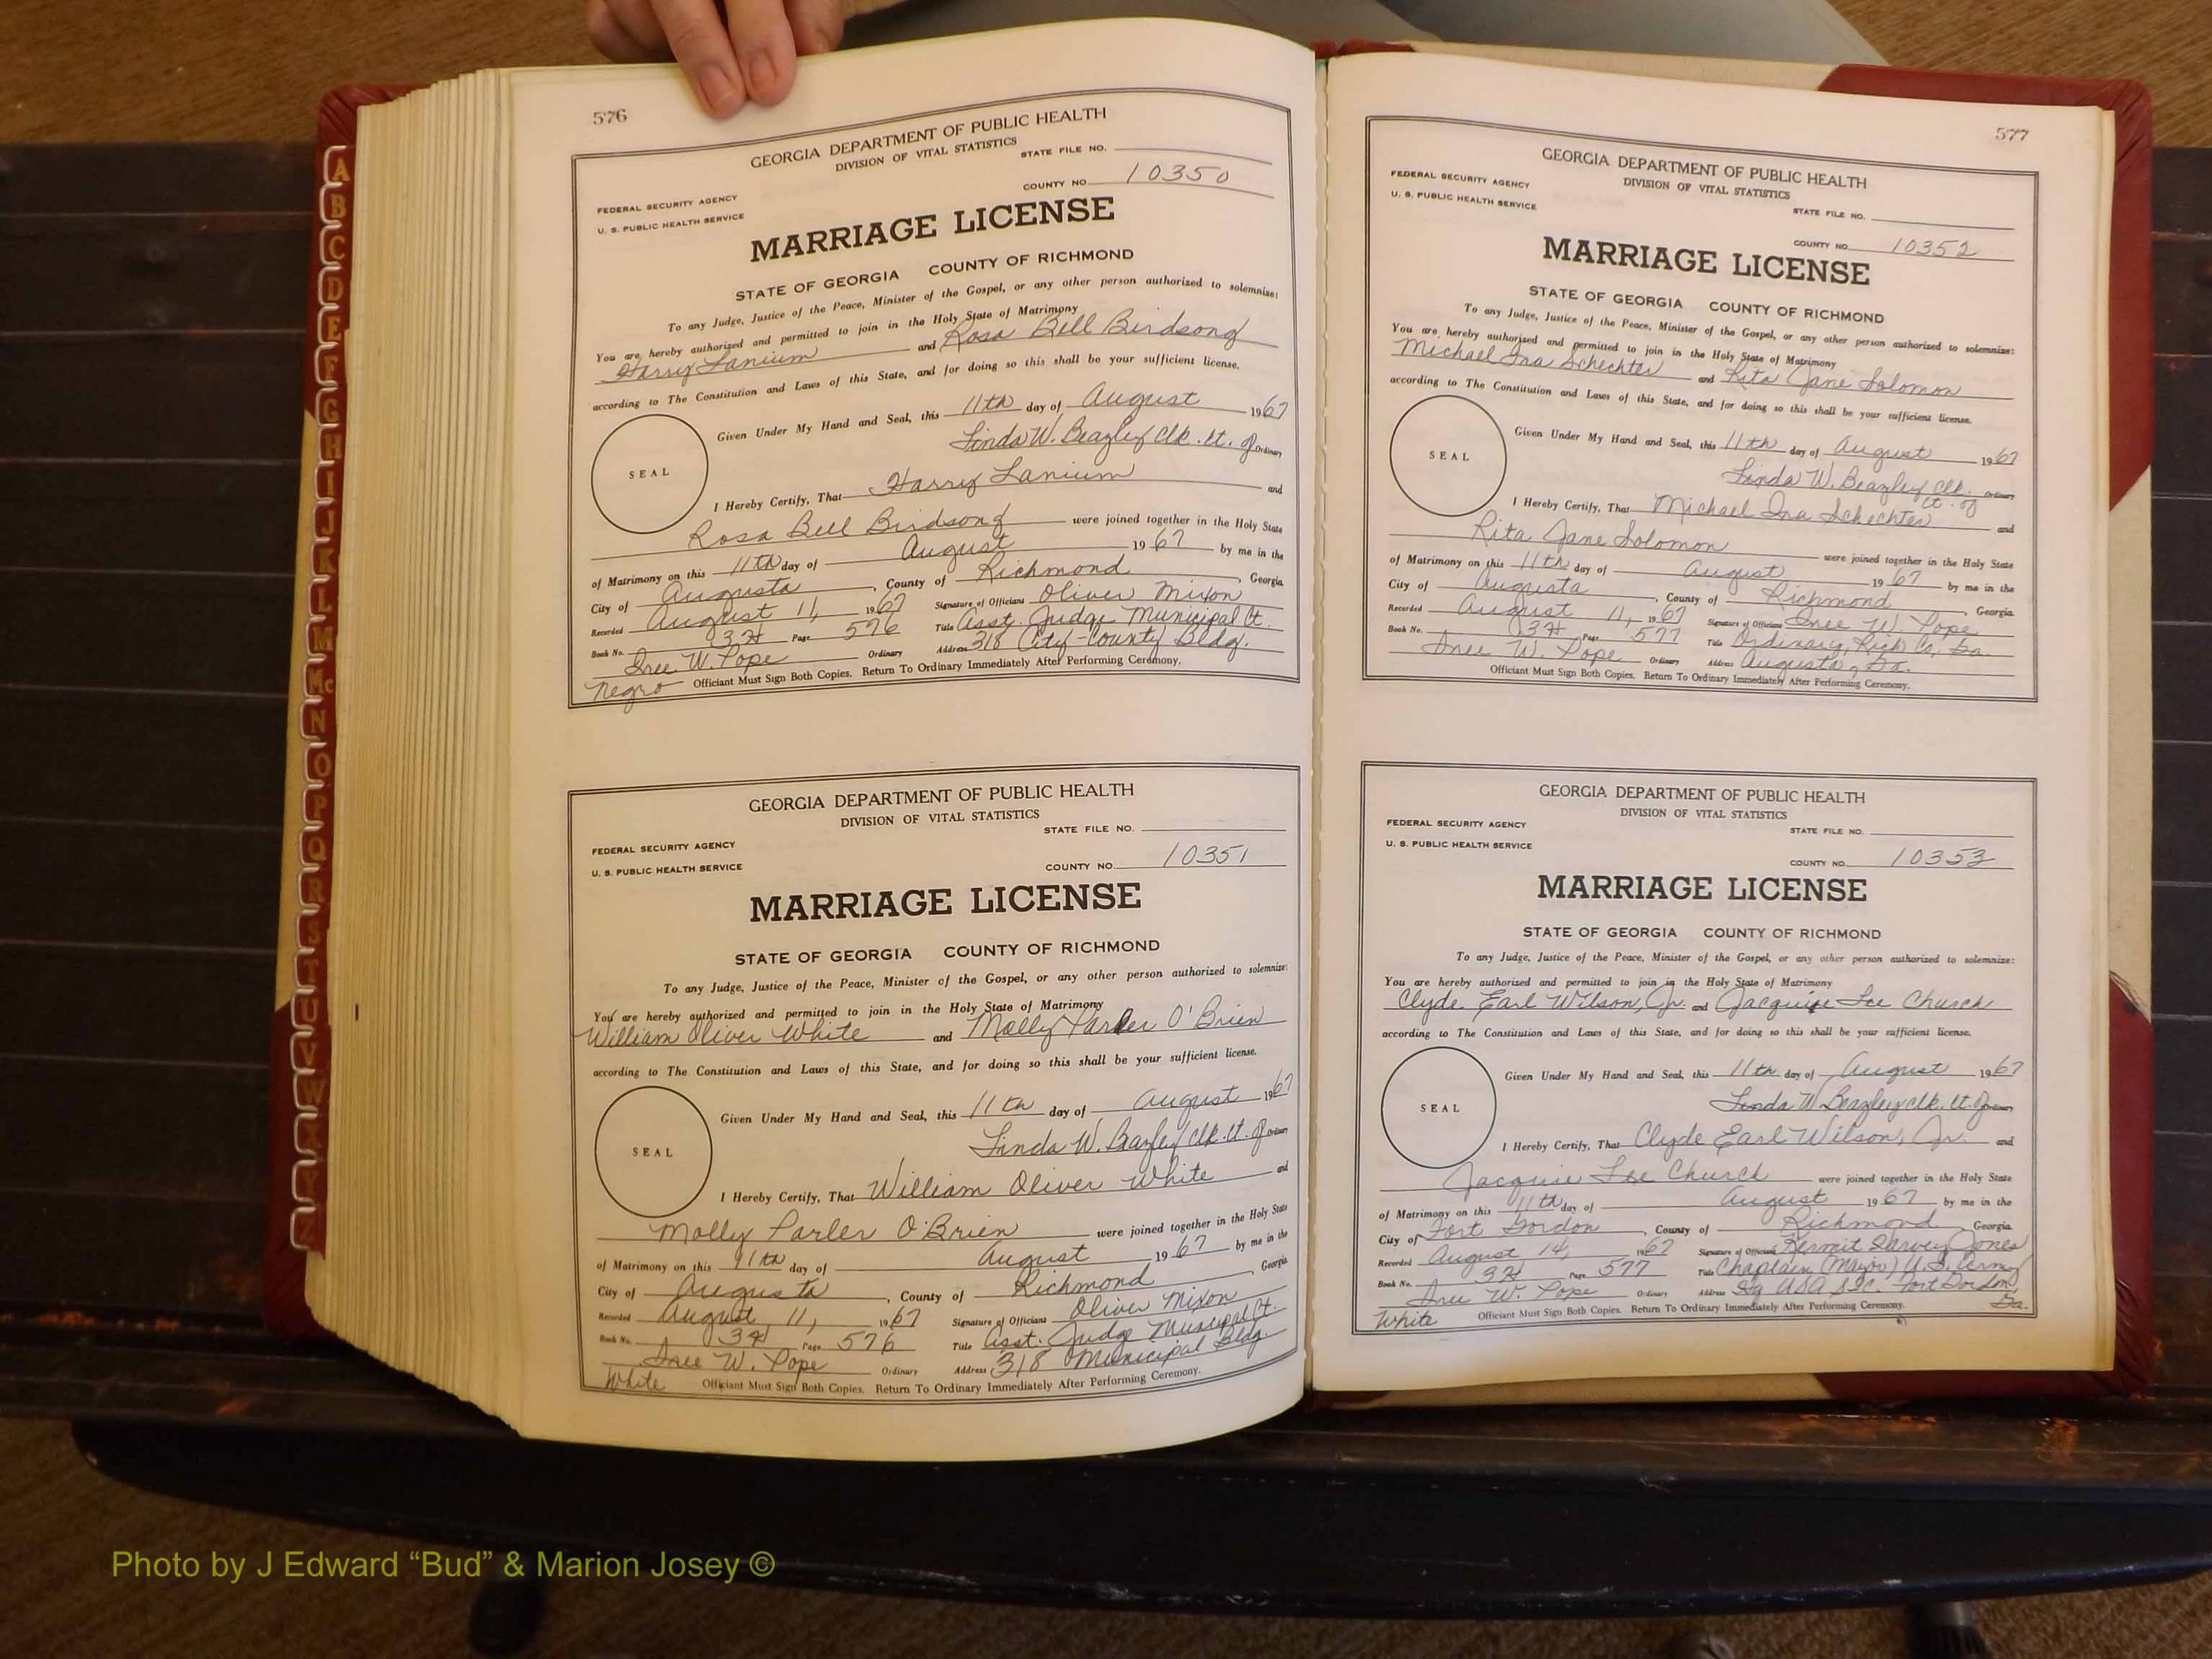 576
GEORGIA DEPARTMENT OF PUBLIC HEALTH
DIVISION OF VITAL STATISTICS
STATE FILE NO.
COUNTY NO. 10350
FEDERAL SECURITY AGENCY
U. S. PUBLIC HEALTH SERVICE
MARRIAGE LICENSE
STATE OF GEORGIA COUNTY OF RICHMOND
To any Judge, Justice of the Peace, Minister of the Gospel, or any other person authorized to solemnize:
You are hereby authorized and permitted to join in the Holy State of Matrimony
Harry Lanium and Rosa Bell Birdsong
according to The Constitution and Laws of this State, and for doing so this shall be your sufficient license.
Given Under My Hand and Seal, this 11th day of August 1967
Linda W. Beazley Clk. Ct. of Ordinary
SEAL
I Hereby Certify, That Harry Lanium and
Rosa Bell Birdsong were joined together in the Holy State
of Matrimony on this 11th day of August 1967 by me in the
City of Augusta, County of Richmond, Georgia
Recorded August 11, 1967 Signature of Officiant Oliver Mixon
Book No. 3H Page 576 Title Asst. Judge Municipal Ct.
Iree W. Pope Ordinary Address 318 City-County Bldg.
Negro Officiant Must Sign Both Copies. Return To Ordinary Immediately After Performing Ceremony.
GEORGIA DEPARTMENT OF PUBLIC HEALTH
DIVISION OF VITAL STATISTICS
STATE FILE NO.
FEDERAL SECURITY AGENCY
U. S. PUBLIC HEALTH SERVICE
COUNTY NO. 10351
MARRIAGE LICENSE
STATE OF GEORGIA COUNTY OF RICHMOND
To any Judge, Justice of the Peace, Minister of the Gospel, or any other person authorized to solemnize:
You are hereby authorized and permitted to join in the Holy State of Matrimony
William Oliver White and Molly Parler O'Brien
according to The Constitution and Laws of this State, and for doing so this shall be your sufficient license.
Given Under My Hand and Seal, this 11th day of August 1967
Linda W. Beazley Clk. Ct. of Ordinary
SEAL
I Hereby Certify, That William Oliver White and
Molly Parler O'Brien were joined together in the Holy State
of Matrimony on this 11th day of August 1967 by me in the
City of Augusta, County of Richmond Georgia
Recorded August 11, 1967 Signature of Officiant Oliver Mixon
Book No. 3H Page 576 Title Asst. Judge Municipal Ct.
Iree W. Pope Ordinary Address 318 Municipal Bldg.
White Officiant Must Sign Both Copies. Return To Ordinary Immediately After Performing Ceremony.
577
GEORGIA DEPARTMENT OF PUBLIC HEALTH
DIVISION OF VITAL STATISTICS
FEDERAL SECURITY AGENCY
U. S. PUBLIC HEALTH SERVICE
STATE FILE NO.
COUNTY NO. 10352
MARRIAGE LICENSE
STATE OF GEORGIA COUNTY OF RICHMOND
To any Judge, Justice of the Peace, Minister of the Gospel, or any other person authorized to solemnize:
You are hereby authorized and permitted to join in the Holy State of Matrimony
Michael Ira Schechter and Rita Jane Solomon
according to The Constitution and Laws of this State, and for doing so this shall be your sufficient license.
Given Under My Hand and Seal, this 11th day of August 1967
Linda W. Beazley Clk. Ct. of Ordinary
SEAL
I Hereby Certify, That Michael Ira Schechter and
Rita Jane Solomon were joined together in the Holy State
of Matrimony on this 11th day of August 1967 by me in the
City of Augusta, County of Richmond, Georgia.
Recorded August 11, 1967 Signature of Officiant Iree W. Pope
Book No. 3H Page 577 Title Ordinary, Rich. Co. Ga.
Iree W. Pope Ordinary Address Augusta, Ga.
Officiant Must Sign Both Copies. Return To Ordinary Immediately After Performing Ceremony.
GEORGIA DEPARTMENT OF PUBLIC HEALTH
DIVISION OF VITAL STATISTICS
FEDERAL SECURITY AGENCY
STATE FILE NO.
U. S. PUBLIC HEALTH SERVICE
COUNTY NO. 10353
MARRIAGE LICENSE
STATE OF GEORGIA COUNTY OF RICHMOND
To any Judge, Justice of the Peace, Minister of the Gospel, or any other person authorized to solemnize:
You are hereby authorized and permitted to join in the Holy State of Matrimony
Clyde Earl Wilson, Jr. and Jacquie Lee Church
according to The Constitution and Laws of this State, and for doing so this shall be your sufficient license.
Given Under My Hand and Seal, this 11th day of August 1967
Linda W. Beazley Clk. Ct. of Ordinary
SEAL
I Hereby Certify, That Clyde Earl Wilson, Jr. and
Jacquie Lee Church were joined together in the Holy State
of Matrimony on this 11th day of August 1967 by me in the
City of Fort Gordon, County of Richmond, Georgia
Recorded August 14, 1967 Signature of Officiant Kermit Jones
Book No. 3H Page 577 Title Chaplain (Major) U.S. Army
Iree W. Pope Ordinary Address Hq USA Fort Gordon, Ga.
White Officiant Must Sign Both Copies. Return To Ordinary Immediately After Performing Ceremony.
A
B
C
D
E
F
G
H
I
J
K
L
M
Mc
N
O
P
Q
R
S
T
U
V
W
X
Y
Z
Photo by J Edward “Bud” & Marion Josey ©